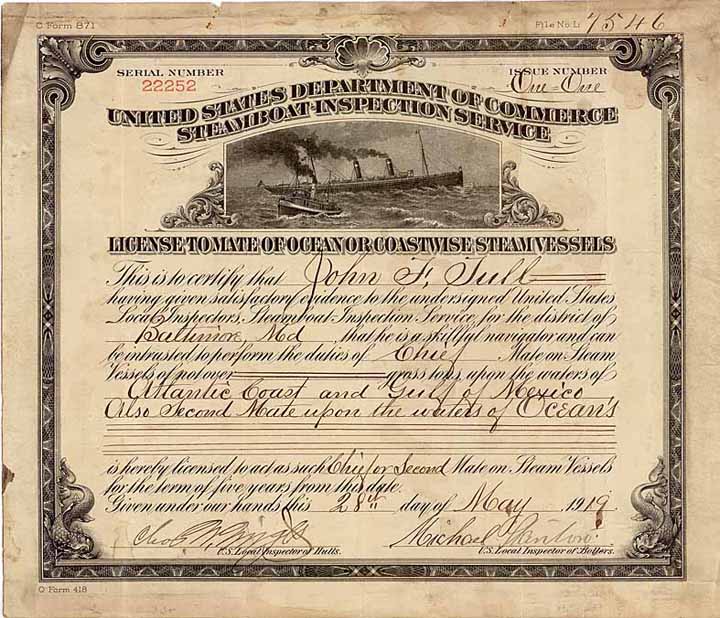 C Form 871
File No. L: 7546
SERIAL NUMBER
22252
ISSUE NUMBER
One-One
UNITED STATES DEPARTMENT OF COMMERCE
STEAMBOAT-INSPECTION SERVICE
LICENSE TO MATE OF OCEAN OR COASTWISE STEAM VESSELS
This is to certify that John F. Tull
having given satisfactory evidence to the undersigned United States
Local Inspectors, Steamboat-Inspection Service, for the district of
Baltimore, Md that he is a skillful navigator and can
be intrusted to perform the duties of Chief Mate on Steam
Vessels of not over gross tons, upon the waters of
Atlantic Coast and Gulf of Mexico
Also Second Mate upon the waters of Ocean's
is hereby licensed to act as such Chief or Second Mate on Steam Vessels
for the term of five years from this date.
Given under our hands this 28th day of May 1919
U.S. Local Inspector of Hulls.
Michael
U.S. Local Inspector of Boilers.
C Form 418